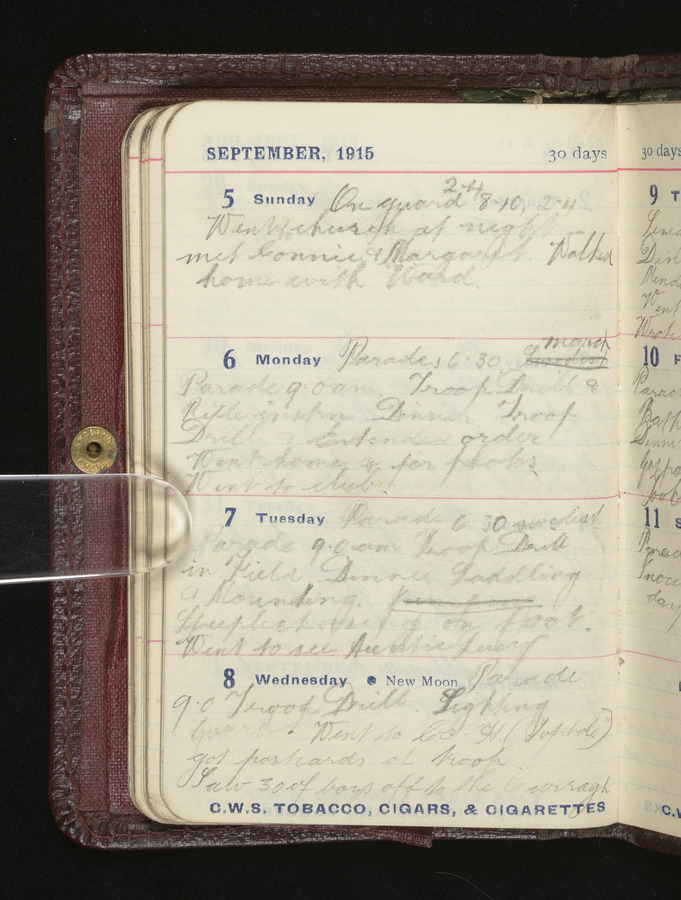 SEPTEMBER, 1915 30 days
5 Sunday On guard 2-4 8-10, 2-4
Went church at night
met Connie & Margaret. Walked
home with Ward.
6 Monday Parade 6.30 march
Parade 9.0 am Troop Drill &
Rifle instrn Dinner Troop
Drill & Extended order
Went home & for photos
Went to club
7 Tuesday Parade 6.30 swedish
Parade 9.0 am Troop Drill
in Field. Dinner Saddling
& Mounting.
Steeplechasing on foot.
Went to see Auntie Lucy
8 Wednesday New Moon Parade
9.0 Troop Drill. Lighting
Went to
got postcards of troop
Saw 30 of boys off to the Curragh
C.W.S. TOBACCO, CIGARS, & CIGARETTES
30 days
9 T
Went
Wrote
10 F
Dinner
11 S
day